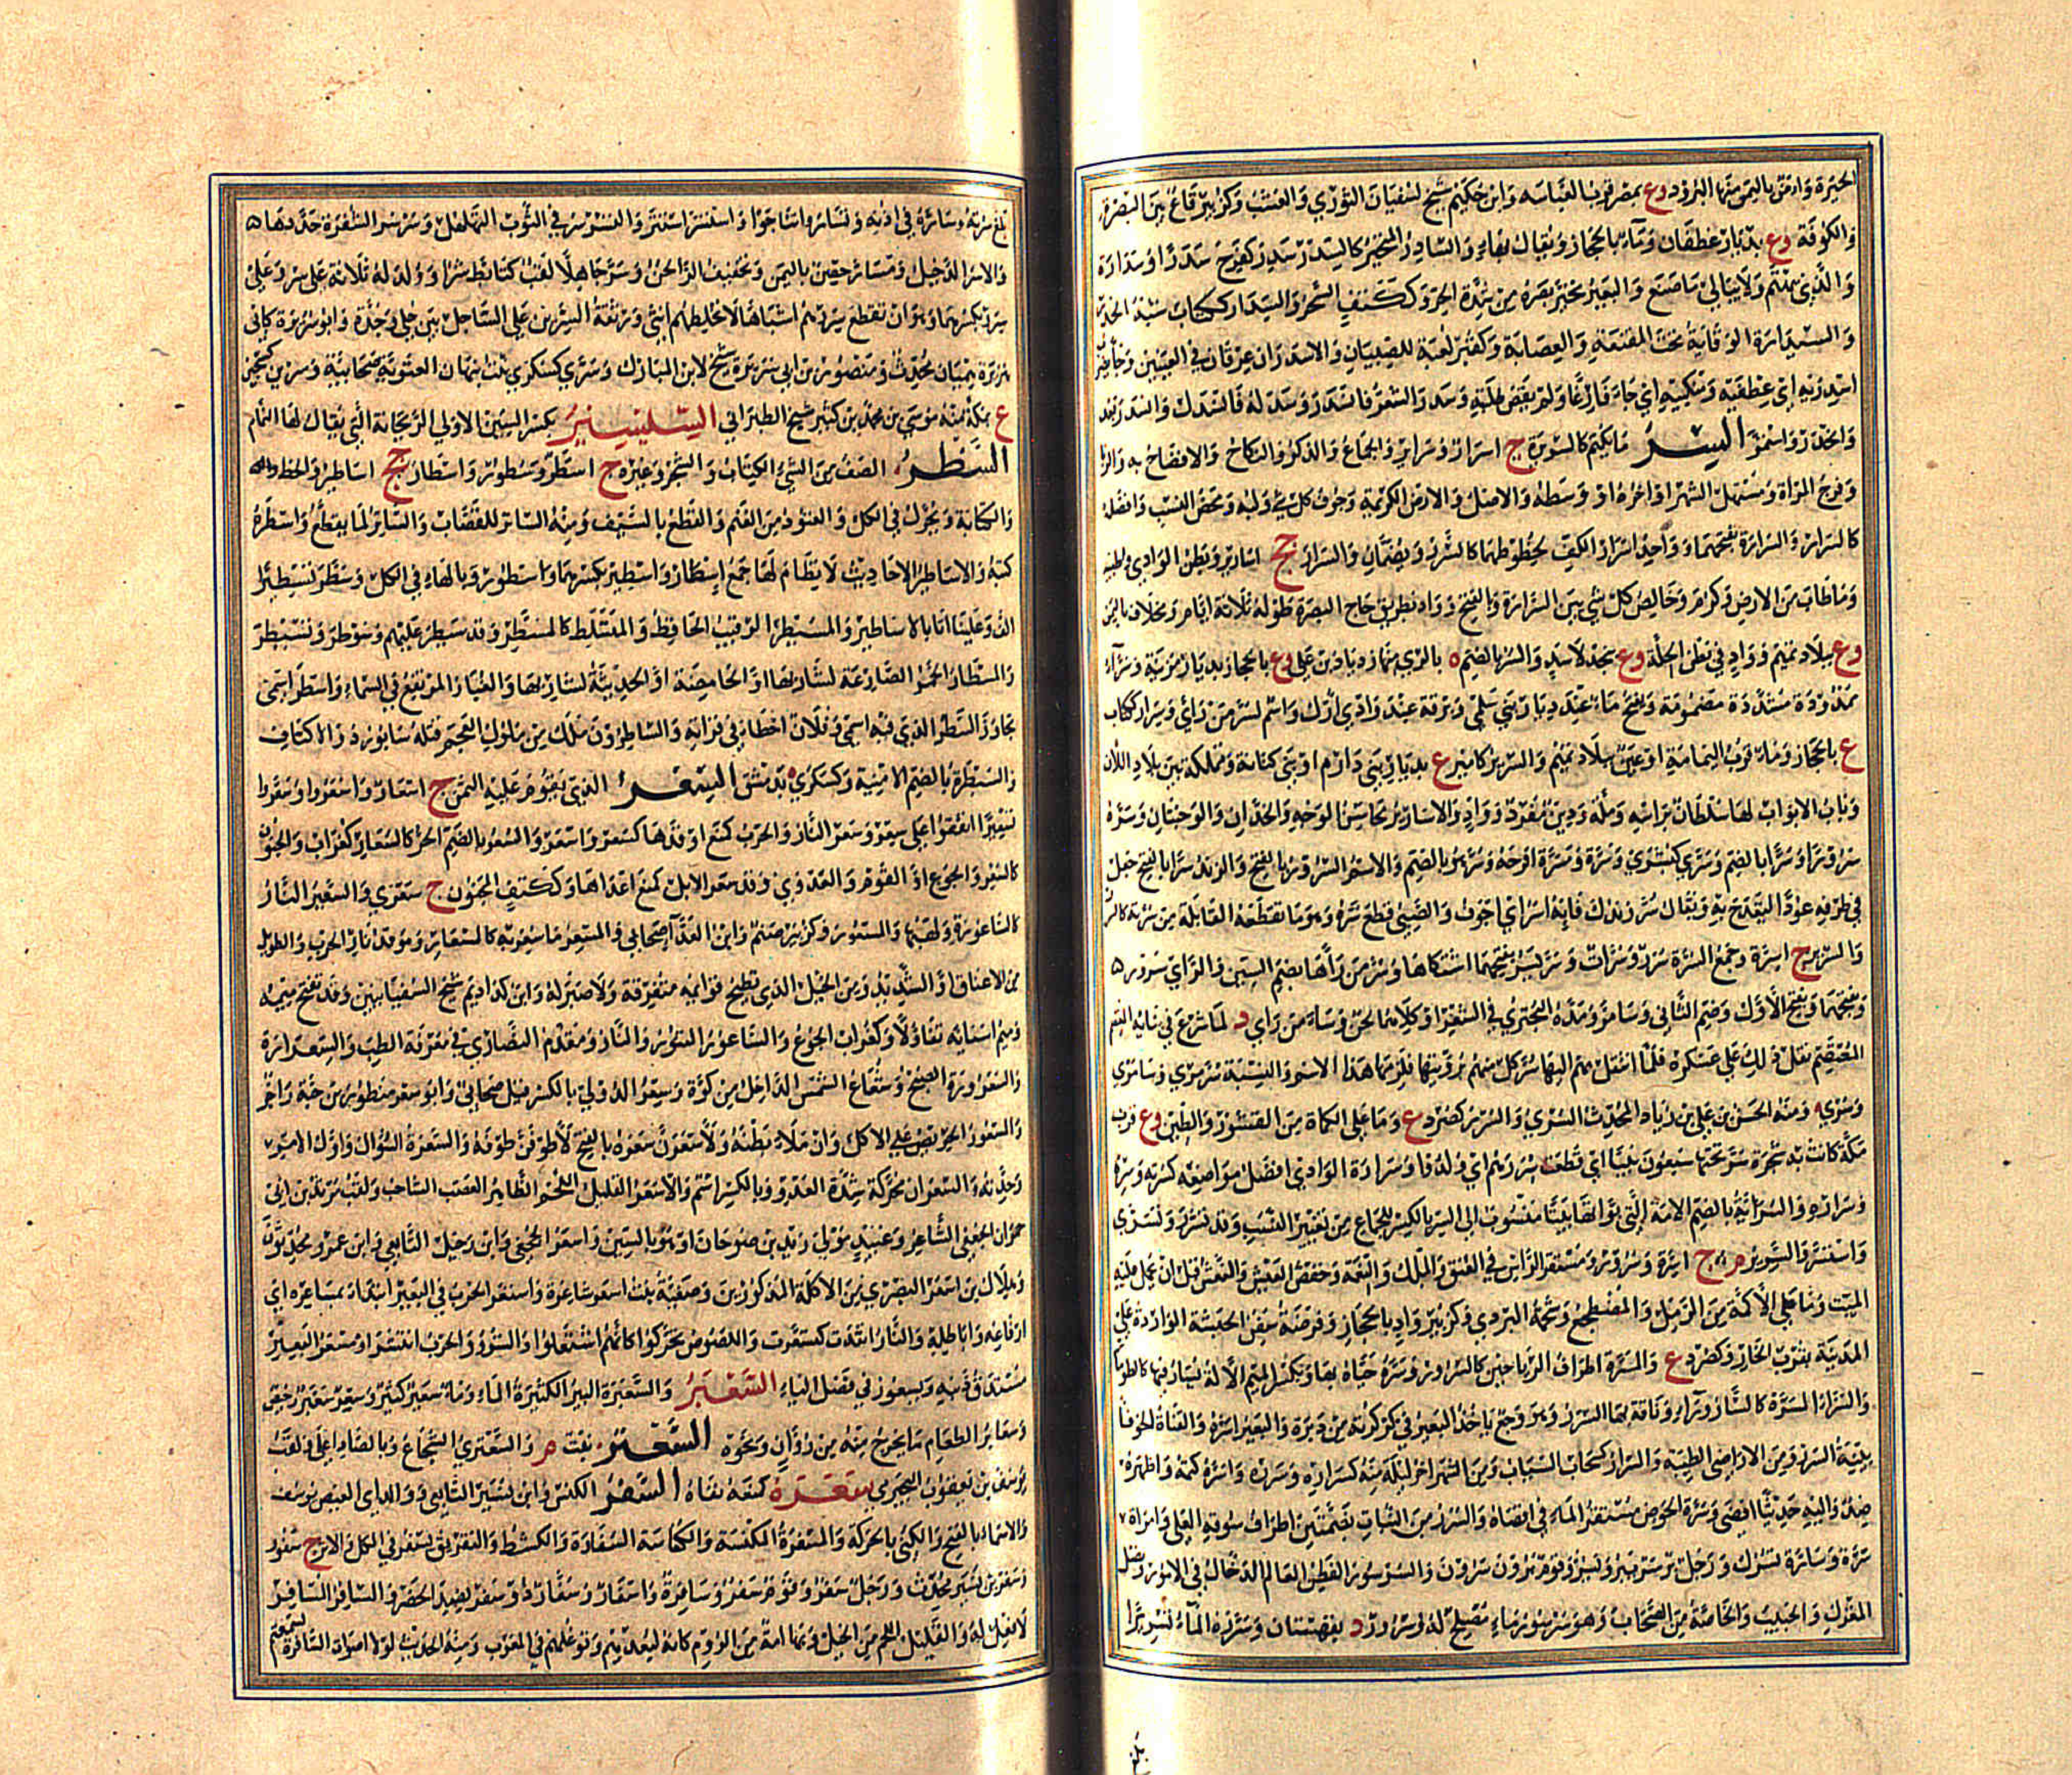 الحيرة وارض باليمن منها البرود وع بمصر قرب العباسه وابن حكيم شيخ لسفيان الثوري والعشب وكزبير قاع بين البصرة
والكوفة وع بديار غطفان وماء بالحجاز ويقال بهاء والسادر المتحير كالسدر سدر كفرح سدرا وسدارة
والذي لا يهتم ولا يبالي ما صنع والبعير تحير بصره من شدة الحر وككتف البحر والسدار ككتاب شبه الخدر
والسيدارة الوقاية تحت المقنعة والعصابة وكقبر لعبة للصبيان والاسدران عرقان في العينين وجاء يضرب
اسدريه اي عطفيه ومنكبيه اي جاء فارغا ولم يقض طلبته وسدر الشعر فانسدر وسدله فانسدل وانسدر يعدو
وانحدر واستمر السر ما يكتم كالسريرة ج اسرار وسراير والجماع والذكر والنكاح والافصاح به والزنا
وفرج المراة ومستهل الشهر او اخره او وسطه والاصل والارض الكريمة وجوف كل شي ولبه ومحض النسب وافضله
كالسرار والسرارة بفتحهما وواحد اسرار الكف لخطوطها كالسرر ويضمان والسرار جج اسارير وبطن الوادي واطيبه
وما طاب من الارض وكرم وخالص كل شي بين السرارة بالفتح وواد بطريق حاج البصرة طوله ثلاثة ايام ومخلاف باليمن
وع ببلاد تميم وواد في بطن الحلة وع بنجد لاسد والسر بالضم ة بالري منها زياد بن علي وع بالحجاز بديار مزينة وسراء
ممدودة مشددة مضمومة وتفتح ماء عند ديار بني سلمى وبرقة عند وادي ارك واسم لسر من راي وسرار ككتاب
ع بالحجاز وماء قرب اليمامة او عين ببلاد تميم والسرير كامير ع بديار بني دارم او بني كنانة ومملكة بين بلاد اللان
وباب الابواب لها سلطان براسه وملة ودين مفرد وواد والاسارير محاسن الوجه والخدان والوجنتان وسره
سرورا وسرا بالضم وسرى كبشرى وتسرة ومسرة افرحه وسر هو بالضم والاسم السرور بالفتح والزند سرا بالفتح جعل
في طرفه عودا ليقدح به ويقال سر زندك فانه اسر اي اجوف والصبي قطع سره وهو ما تقطعه القابلة من سرته كالسرر
والسرر ج اسرة وجمع السرة سرر وسرات وسر يسر بفتحهما اشتكاها وسر من راى بضم السين والراي سرور
وبفتحهما وبفتح الاول وضم الثاني وسامرا ومده البحتري في الشعر او كلاهما لحن وساء من راي د لما شرع في بنائه
المعتصم ثقل ذلك على عسكره فلما انتقل بهم اليها سر كل منهم برؤيتها فلزمها هذا الاسم والنسبة سرمري وسامري
وسري ومنه الحسن بن علي بن زياد المحدث السري والسرر كصرد ع وما على الكماة من القشور والطين وع قرب
مكة كانت به شجرة سر تحتها سبعون نبيا اي قطعت سررهم اي ولدوا وسرارة الوادي افضل مواضعه كسرته وسره
وسراره والسرية بالضم الامة التي بواتها بيتا منسوب الى السر بالكسر للجماع من تغيير النسب وقد تسرر وتسرى
واستسر والسرير م ج اسرة وسرر ومستقر الراس في العنق والملك والنعمة وخفض العيش والنعش قبل ان يحمل عليه
الميت وما على الاكمة من الرمل والمضطجع وشحمة البردي وكزبير واد بالحجاز وفرضة سفن الحبشة الواردة على
المدينة بقرب الجار وكصرد ع والمسرة اطراف الرياحين كالسرور وسره حياه بها وبكسر الميم الالة يسار فيها كالطومار
والسراء المسرة كالساروراء وناقة بها السرر وهو وجع ياخذ البعير في كركرته من دبرة والبعير اسر والقناة الجوفاء
بينة السرر ومن الاراضي الطيبة والسرار كسحاب السياب ومن الشهر اخر ليلة منه كسراره وسرره واسره كتمه واظهره
ضد واليه حديثا افضى وسرة الحوض مستقر الماء في اقصاه والسرر من النبات بضمتين اطراف سوقه العلى وامراة
سرة وسارة تسرك ورجل بر سر يبر ويسر وقوم برون سرون والسرسور الفطن العالم الدخال في الامور ونصل
المغزل والحبيب والخاصة من الصحاب وهو سرسور مال مصلح له وسرور د بقهستان وسرره الماء تسريرا
بلغ سرته وساره في اذنه وتساروا تناجوا واستسر استتر والتسرسر في الثوب التهلهل وسرسر الشفرة حددها
والاسر الدخيل ومسار حصن باليمن وتخفيف الراء لحن وسر جاهلا لقب كتابط شرا وولد له ثلاثة على سر وعلى
سرر بكسرهما وهو ان تقطع سررهم اشباها لا تخلطهم انثى ورتقة السرين على الساحل بين حلي وجدة وابو سريرة كابي
هريرة هميان محدث ومنصور بن ابي سريرة شيخ لابن المبارك وسرى كسكرى بنت نبهان الغنوية صحابية وسرين كسجين
ع بمكة منه موسى بن محمد بن كثير شيخ الطبراني السيسنبر بكسر السين الاولى الريحانة التي يقال لها النمام
السطر الصف من الشي كالكتاب والشجر وغيره ج اسطر وسطور واسطار جج اساطير والخط
والكتابة ويحرك في الكل والعتود من الغنم والقطع بالسيف ومنه الساطر للقصاب والساطور لما يقطع به واسطره
كتبه والاساطير الاحاديث لا نظام لها جمع اسطار واسطير بكسرهما واسطور وبالهاء في الكل وسطر تسطيرا
الف وعلينا اتانا بالاساطير والمسيطر الرقيب الحافظ والمتسلط كالمسطر وقد سيطر عليهم وسوطر وتسيطر
والمسطار الخمر الصارعة لشاربها او الحامضة او الحديثة والغبار المرتفع في السماء واسطر اسمي
تجاوز السطر الذي فيه اسمي وفلان اخطا في قراته والساطرون ملك من ملوك العجم قتله سابور ذو الاكتاف
والسطرة بالضم الامنية وكسكرى ة بدمشق السعر الذي يقوم عليه الثمن ج اسعار واسعروا وسعروا
تسعيرا اتفقوا على سعر وسعر النار والحرب كمنع اوقدها كسعر واسعر والسعر بالضم الحر كالسعار كغراب والجنون
كالسعر والجوع او القرم والعدوى وقد سعر الابل كمنع اعداها وككتف المجنون ج سعرى والسعير النار
كالساعورة ولهبها والمستعور وكزبير صنم وابن العداء صحابي والمسعر ما سعر به كالمسعار وموقد نار الحرب والطويل
من الاعناق او الشديد ومن الخيل الذي تطيح قوائمه متفرقة ولا ضبر له وابن كدام شيخ السفيانين وقد تفتح ميمه
وميم اسمائه تفاؤلا وكغراب الجوع والساعور التنور والنار ومقدم النصارى في معرفة الطب والسعرارة
والسعرورة الصبح وشعاع الشمس الداخل من كوة وسعر الدولي بالكسر قيل صحابي وابو سعر منظور بن حبة راجز
والسعور الحريص على الاكل وان ملاء بطنه ولاسعرن سعره بالفتح لاطوفن طوفه والسعرة السعال واول الامر
وجدته والسعران محركة شدة العدو وبالكسر اسم والاسعر القليل اللحم الظاهر العصب الشاحب ولقب مرثد بن ابي
حمران الجعفي الشاعر وعبيد مولى زيد بن صوحان او هو بالسين واسعر الجعفي وابن رحيل التابعي وابن عمرو محدثون
وهلال بن اسعر البصري من الاكلة المذكورين وصفية بنت اسعر شاعرة واستعر الجرب في البعير ابتدا بمساعره اي
ارفاغه واباطه والنار اتقدت كتسعرت واللصوص تحركوا كانهم اشتعلوا والشر والحرب انتشرا ومسعر البعير
مستدق ذنبه ويستعور في فصل الياء السعبر والسعبرة البير الكثيرة الماء وماء سعبر كثير وسعر سعبر رخيص
وسعابر الطعام ما يخرج منه من زوان ونحوه السعتر نبت م والسعتري الشجاع وبالصاد اعلى ولقب
يوسف بن يعقوب النجيرمي سغره كمنعه نفاه السفر الكنس وابن نسير التابعي ووالد ابي الفيض يوسف
والاسماء بالفتح والكنى بالحركة والمسفرة المكنسة والكناسة السفارة والكشط والتفريق يسفر في الكل والاثر ج سفور
وسفر بن نسير محدث ورجل سفر وقوم سفر وسافرة واسفار وسفار ذو سفر لضد الحضر والسافر المسافر
لا فعل له والقليل اللحم من الخيل وبهاء امة من الروم كانه لبعدهم وتوغلهم في المغرب ومنه الحديث لولا اصوات السافرة لسمعتم
بلغ